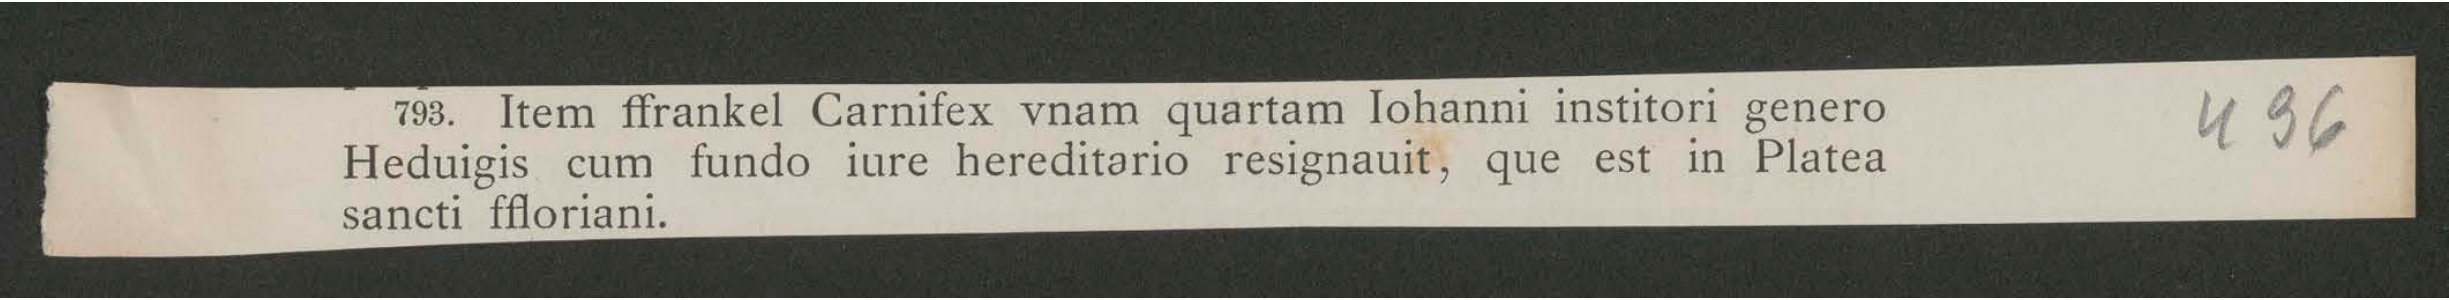 793. Item ffrankel Carnifex vnam quartam Iohanni institori genero
Heduigis cum fundo iure hereditario resignauit, que est in Platea
sancti ffloriani.
496